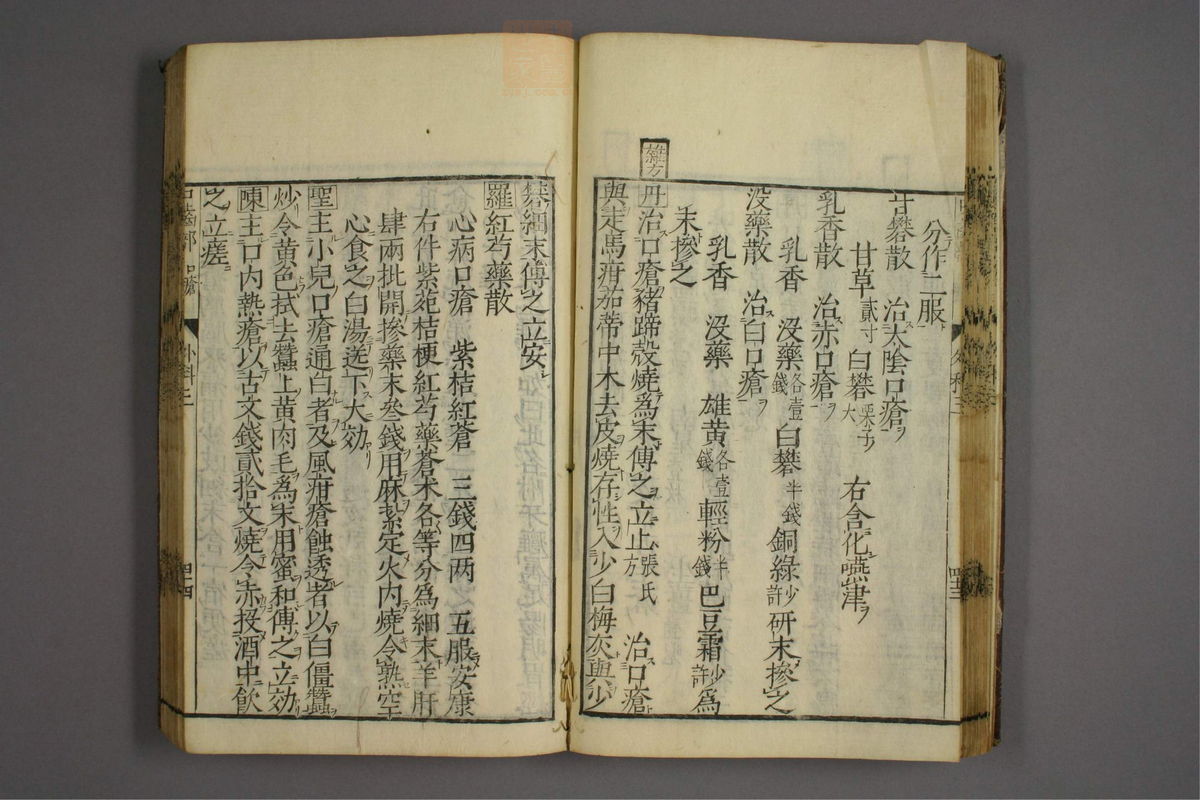 分作二服
甘礬散 治太陰口瘡
甘草貳寸 白礬栗子大 右含化嚥津
乳香散 治赤口瘡
乳香 没藥各壹錢 白礬半錢 銅綠少許 研末摻之
没藥散 治白口瘡
乳香 没藥 雄黄各壹錢 輕粉半錢 巴豆霜少許 爲
末摻之
雜方
丹 治口瘡猪蹄殼燒爲末傅之立止張氏方 治口瘡
與走馬疳茄蒂中木去皮燒存性入少白梅灰與少
礬細末傅之立安
羅紅芍藥散
心病口瘡 紫桔紅蒼 三錢四两 五服安康
右件紫菀桔梗紅芍藥蒼朮各等分爲細末羊肝
肆兩批開摻藥末叁錢用麻絷定火内燒令熟空
心食之白湯送下大効
聖 主小兒口瘡通白者及風疳瘡蝕透者以白僵蠶
炒令黄色拭去蠶上黄肉毛爲末用蜜和傅之立効
陳 主口内熱瘡以古文錢貳拾文燒令赤投酒中飲
之立瘥
口齒部 口瘡
外科三
四十四